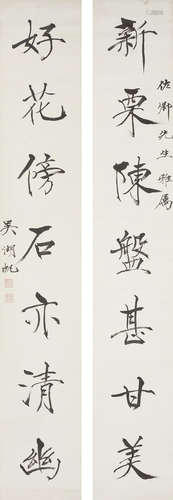 佐卿先生雅属
新栗陳盤甚甘美
好花傍石亦清幽
吴湖帆